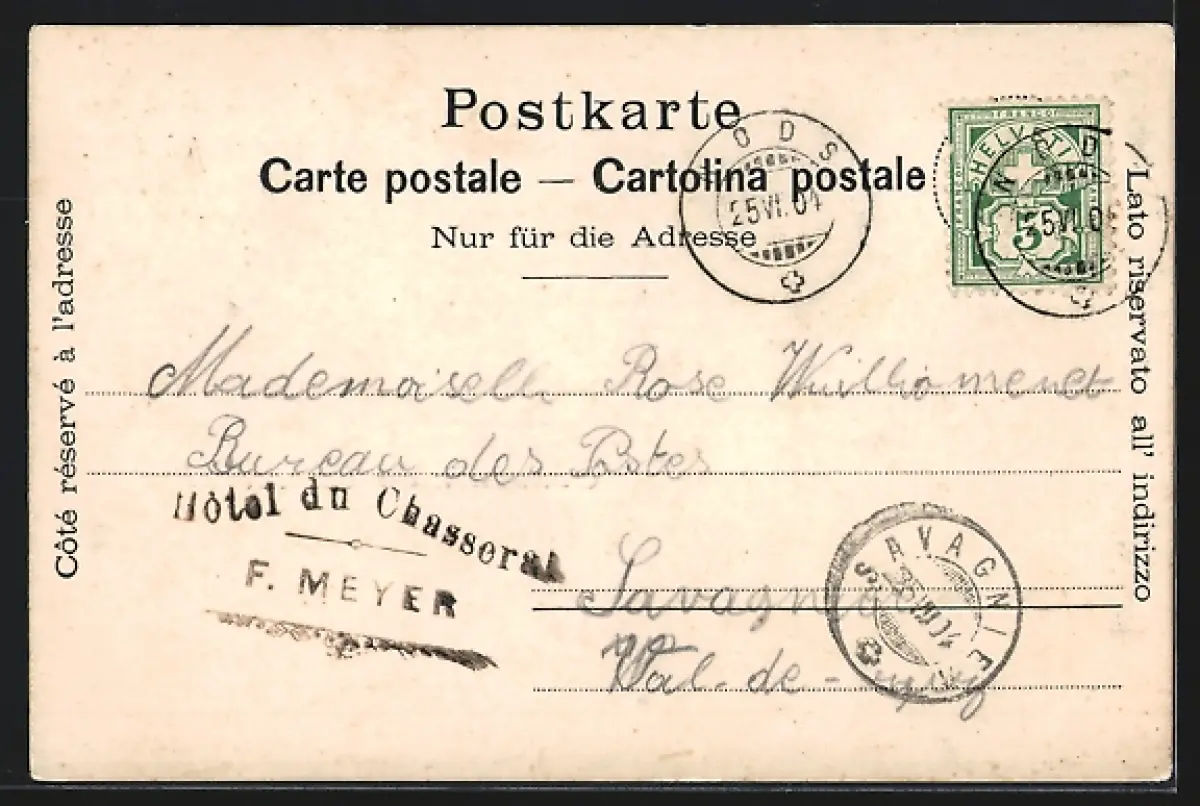 Postkarte
Carte postale — Cartolina postale
Nur für die Adresse
Côté réservé à l'adresse
Lato riservato all' indirizzo
NODS
25 VI. 04
FRANCO
HELVETIA
5
NOD
25 VI. 0
Mademoiselle Rose Wuilliomenet
Bureau des Postes
Hôtel du Chasseral
F. MEYER
Savagnier
Val-de-Ruz
SAVAGNIER